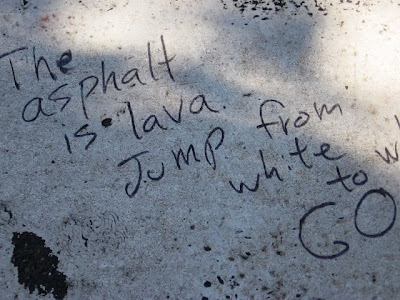 The
asphalt
is lava.
Jump from
white to
GO